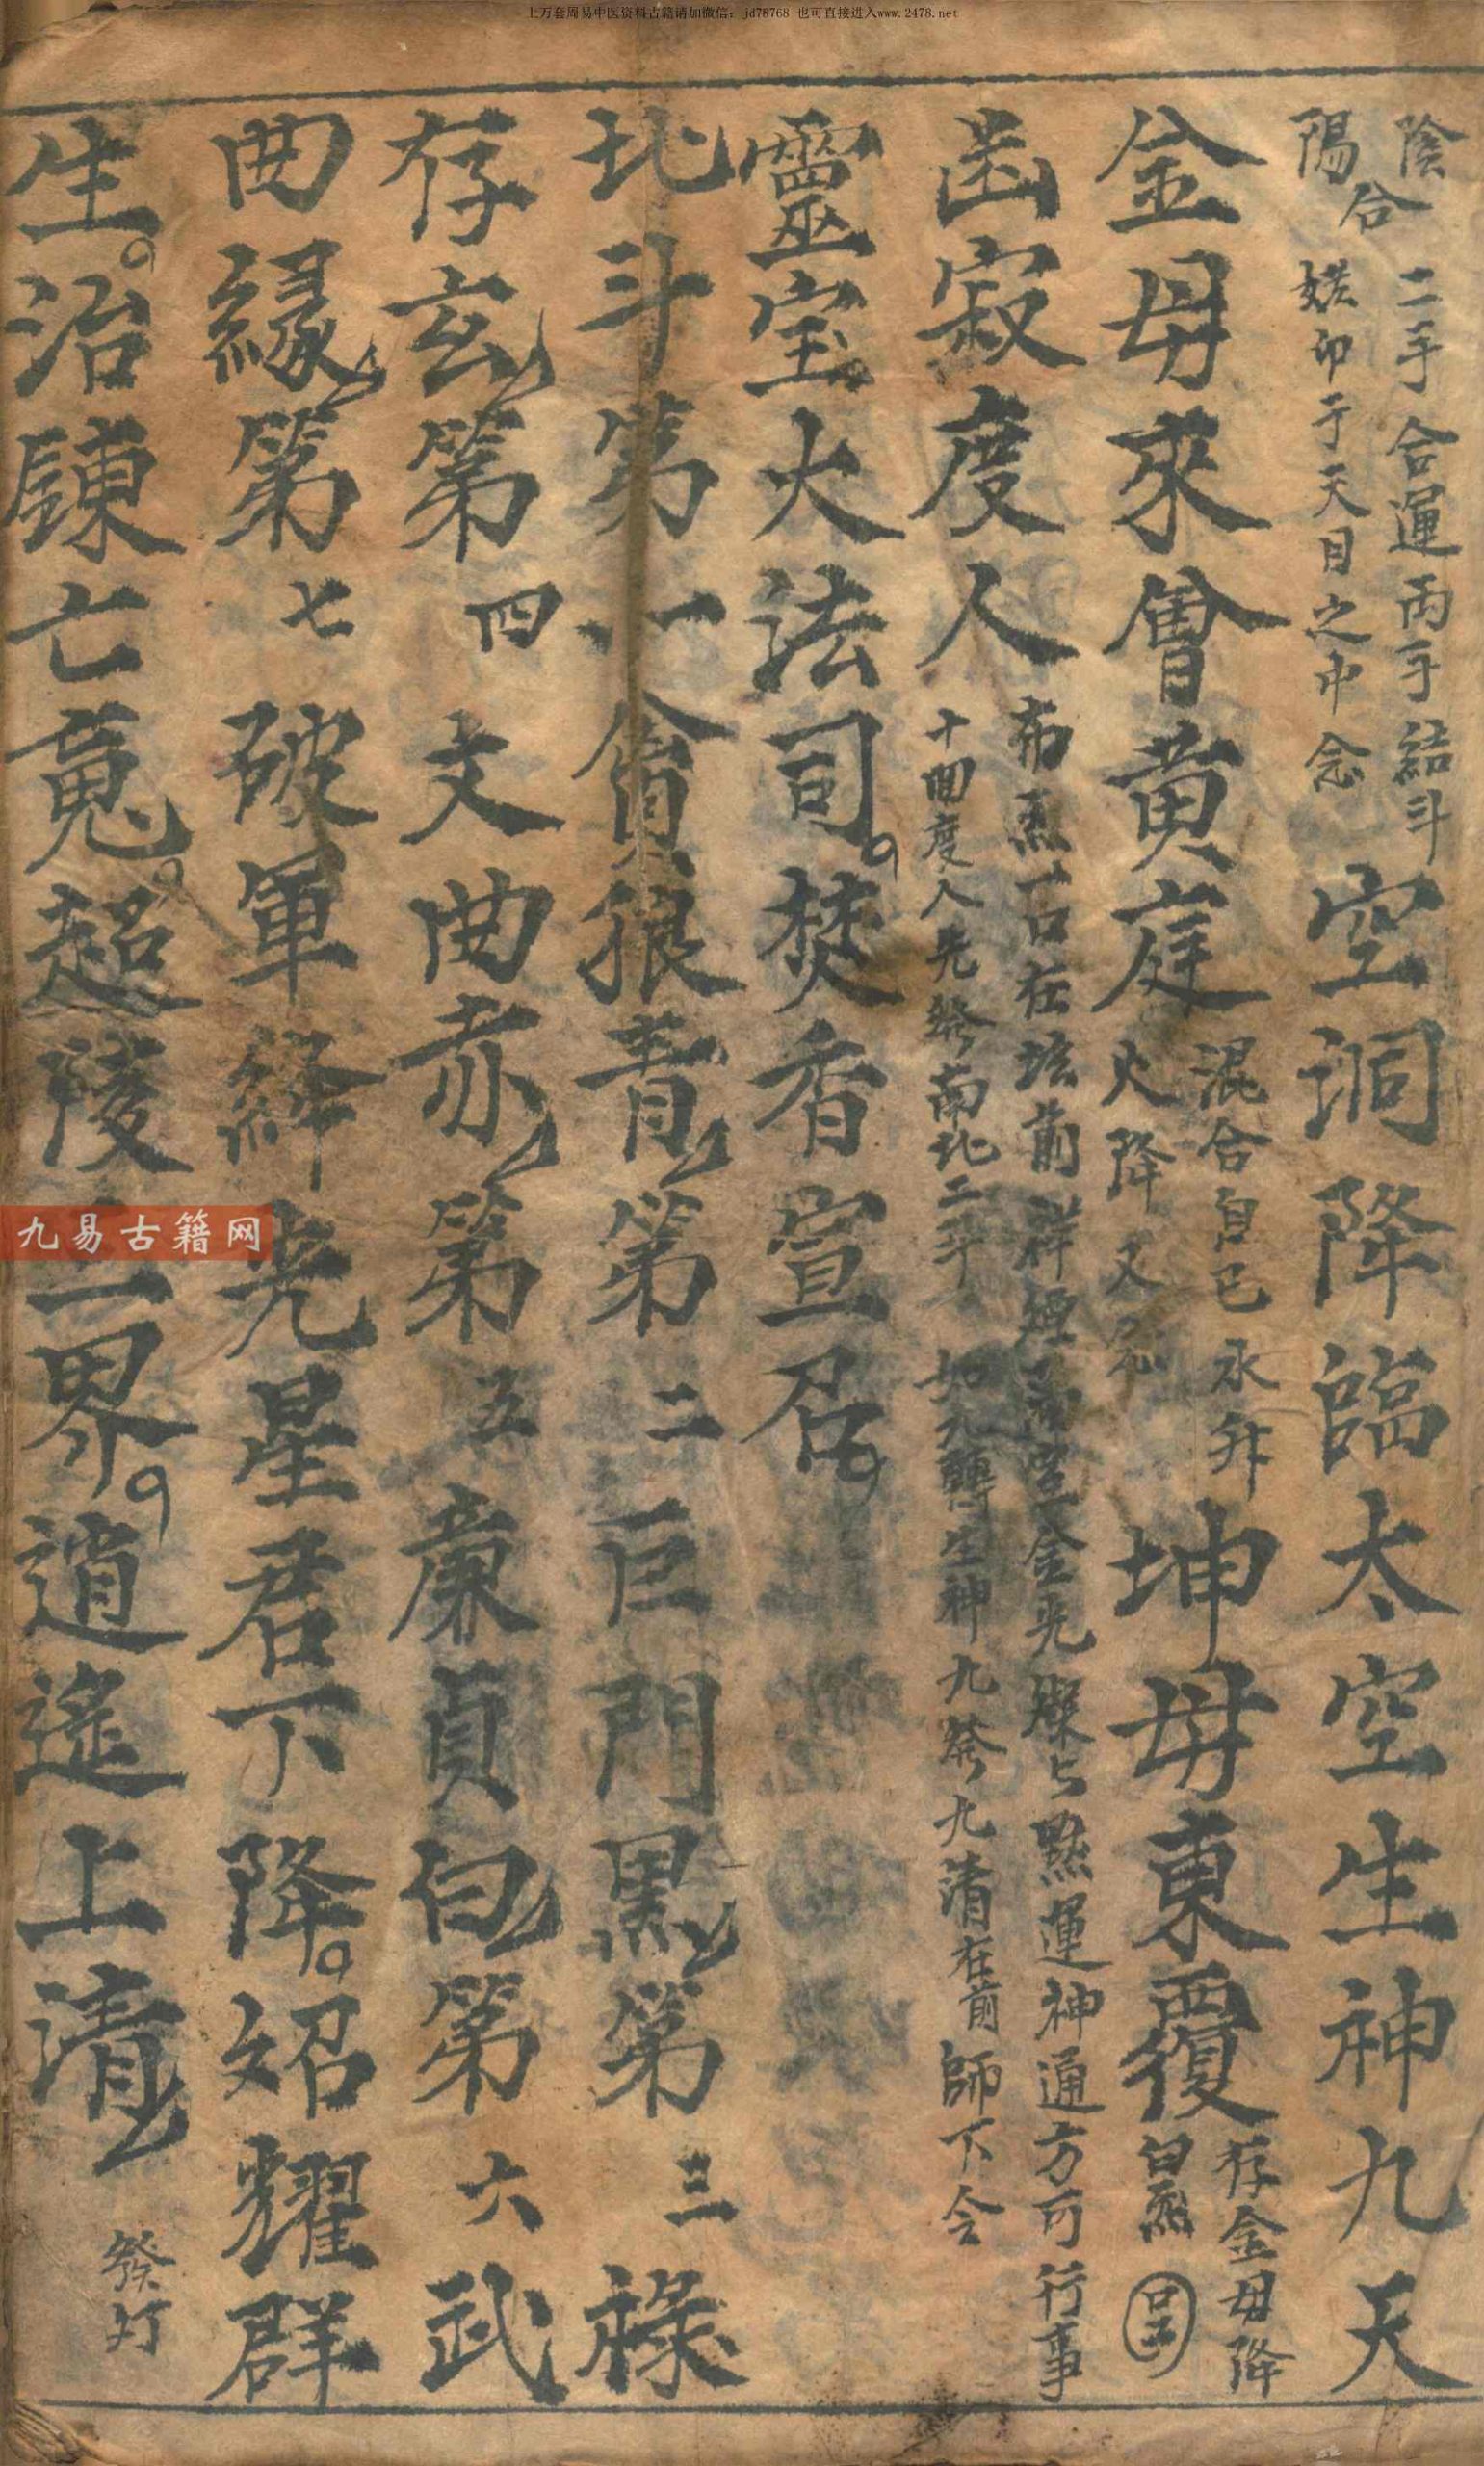 上万套周易中医资料古籍请加微信：jd78768 也可直接进入www.2478.net
陰陽合 二手合運丙手結斗 印于天目之中念 空洞降臨太空生神九天
金母來會黄庭 混合自己永升 火降又 坤母東覆 存金母降白炁
寂度人 布炁一口在坛前祥烟 金光燦 黙運神通方可行事 十回度人先發南北二斗 如九轉生神九發九清在前師下令
靈宝大法司焚香宣召
北斗第一貪狼青第二巨門黑第三禄
存玄第四文曲赤第五廉貞白第六武
曲緣第七破軍絳光星君下降炤耀群
生治鍊亡䰟超陵 界逍遙上清 發灯
九易古籍网